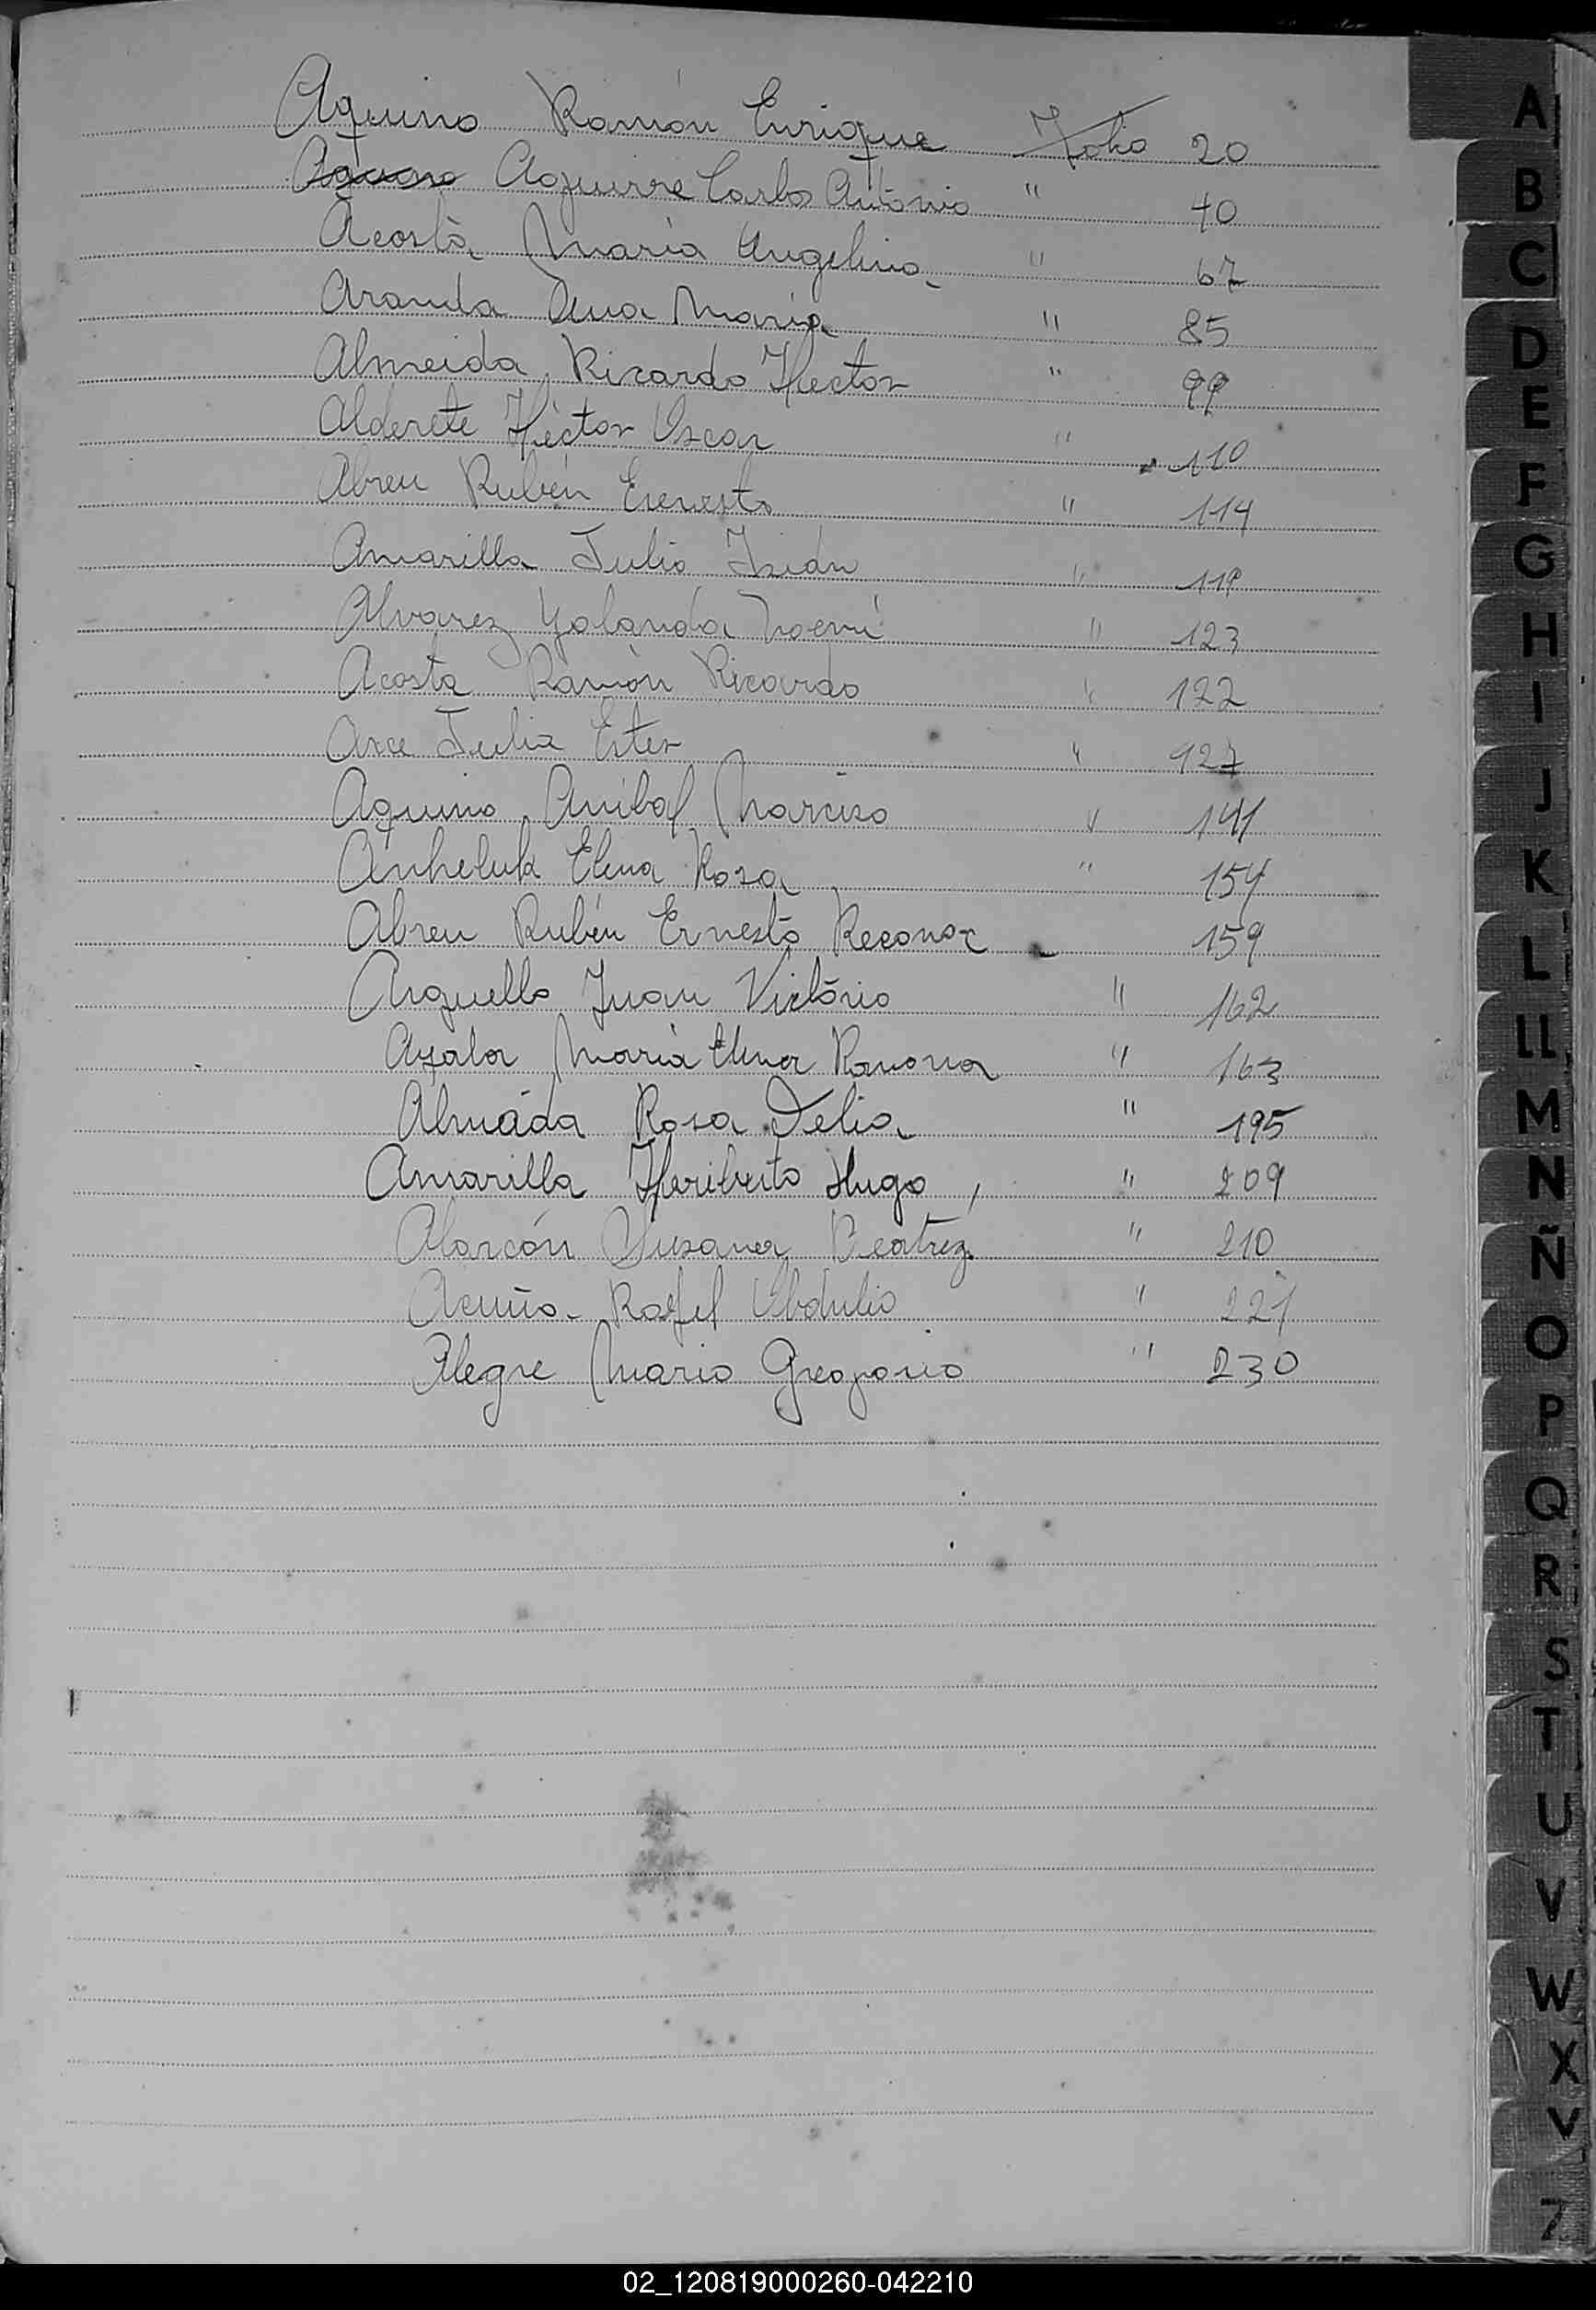 Aquino Ramón Enrique Folio 20
Aguirre Carlos Antonio " 40
Acosta María Angelina " 67
Aranda Ana María " 85
Almeida Ricardo Hector " 99
Alderete Héctor Oscar " 110
Abreu Rubén Ernesto " 114
Amarilla Julio Isidro " 119
Alvarez Yolanda Noemí " 123
Acosta Ramón Ricardo " 122
Arce Julia Ester " 127
Aquino Anibal Narciso " 141
Anheluk Elena Rosa " 154
Abreu Rubén Ernesto Reconoc 159
Arguello Juan Victorio " 162
Ayala María Elena Ramona " 163
Almada Rosa Delia " 195
Amarilla Heriberto Hugo , " 209
Alarcón Susana Beatriz " 210
Acuña Rafel Obdulio " 221
Alegre Mario Gregorio " 230
A
B
C
D
E
F
G
H
I
J
K
L
LL
M
N
Ñ
O
P
Q
R
S
T
U
V
W
X
Z
02_120819000260-042210